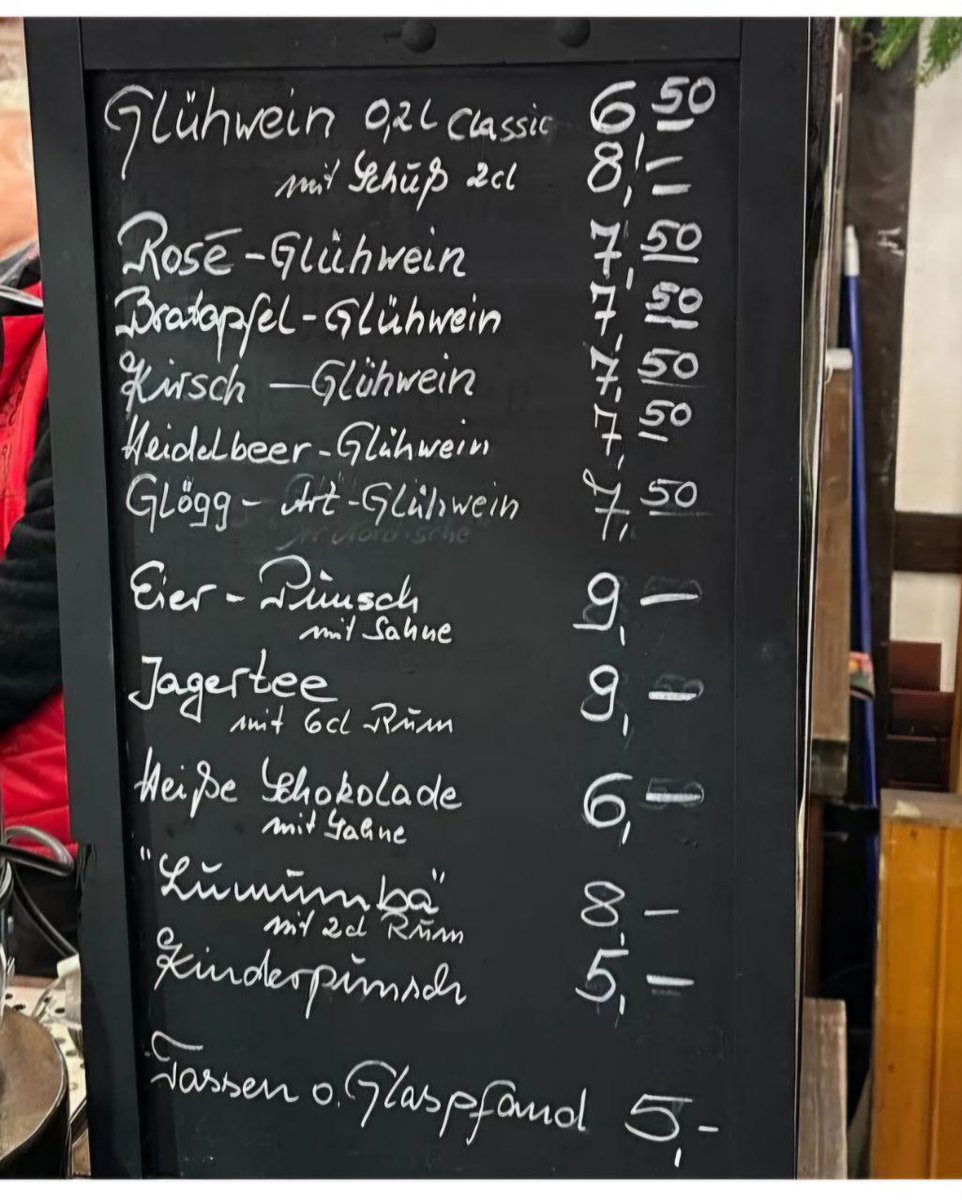 Glühwein 0,2l Classic 6,50
mit Schuß 2cl 8,-
Rosé-Glühwein 7,50
Bratapfel-Glühwein 7,50
Kirsch-Glühwein 7,50
Heidelbeer-Glühwein 7,50
Glögg-Art-Glühwein 7,50
Eier-Punsch 9,-
mit Sahne
Jagertee 9,-
mit 6cl Rum
Heiße Schokolade 6,-
mit Sahne
"Lumumba" 8,-
mit 2cl Rum
Kinderpunsch 5,-
Tassen o. Glaspfand 5,-